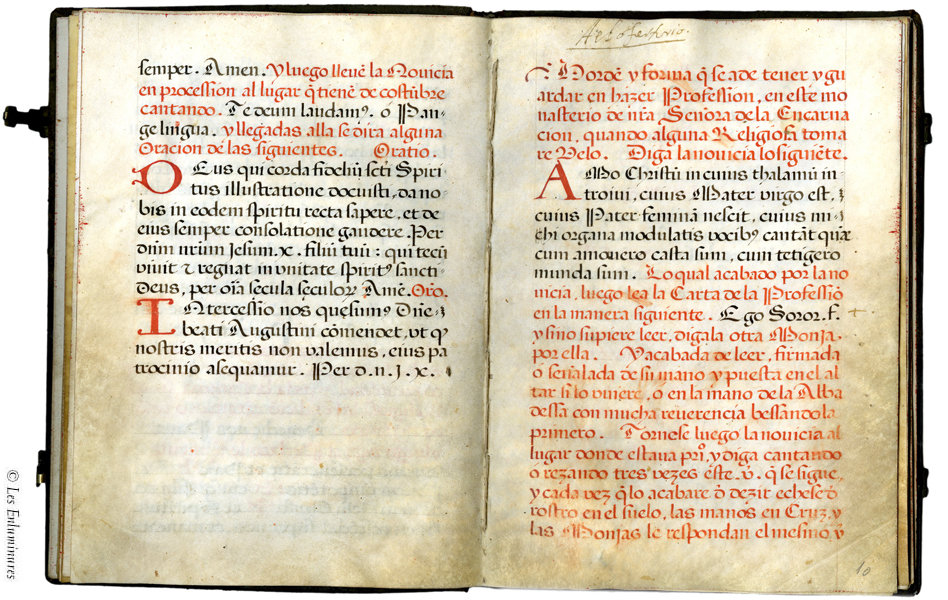 semper. Amen. y luego lleuē la Nouicia
en procession al lugar q̄ tienē de costūbre
cantando. Te deum laudam⁹. ó Pan-
ge lingua. y llegadas alla se dira alguna
Oracion de las siguientes. Oratio.
DEus qui corda fideliū scti Spiri
tus illustratione docuisti, da no-
bis in eodem spiritu recta sapere, et de
eius semper consolatione gaudere. Per
dn̄m nr̄um Jesum. x. filiū tuū : qui tecū
viuit & regnat in vnitate spirit⁹ sancti-
Deus, per oīa secula seculorꝫ Amē. Oro.
INtercessio nos quesum⁹ Dn̄e-
beati Augustini cōmendet, vt qͥ
nostris meritis non valemus, eius pa
trocinio asequamur. Per d. n. J. x.
Hordē y forma q̄ se a de tener y gu
ardar en hazer Profession, en este mo
nasterio de nr̄a Señora de la Encarna
cion, quando alguna Religiosa toma
re Velo. Diga la nouicia lo siguiēte.
AMo Christū in cuius thalamū in-
troiui, cuius Mater virgo est, ꝫ
cuius Pater feminā nescit, cuius mi-
chi organa modulatis vocib⁹ cantāt quæ
cum amouero casta sum, cum tetigero
munda sum. Lo qual acabado por la no
uicia, luego lea la Carta de la Professiō
en la manera siguiente. Ego Soror. f. +
y si no supiere leer, digala otra Monja.
por ella. Y acabada de leer, firmada
o señalada de su mano y puesta en el al
tar si lo vuiere, o en la mano de la Aba
dessa con mucha reuerencia bessando la
primero. Tornese luego la nouicia al
lugar donde estaua prī, y diga cantando
o rezando tres vezes este. v. q̄ se sigue,
y cada vez q̄ lo acabare d dezir echese d
rostro en el suelo, las manos en Cruz, y
las Monjas le respondan el mesmo, v̄
10
© Les Enluminures